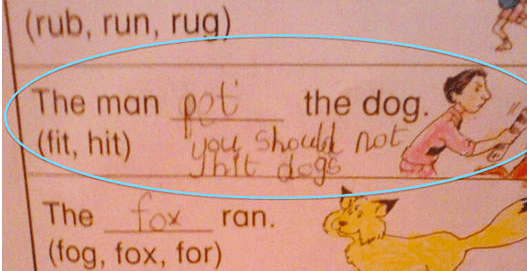 (rub, run, rug)
The man pet the dog.
(fit, hit) you should not
hit dogs
The fox ran.
(fog, fox, for)